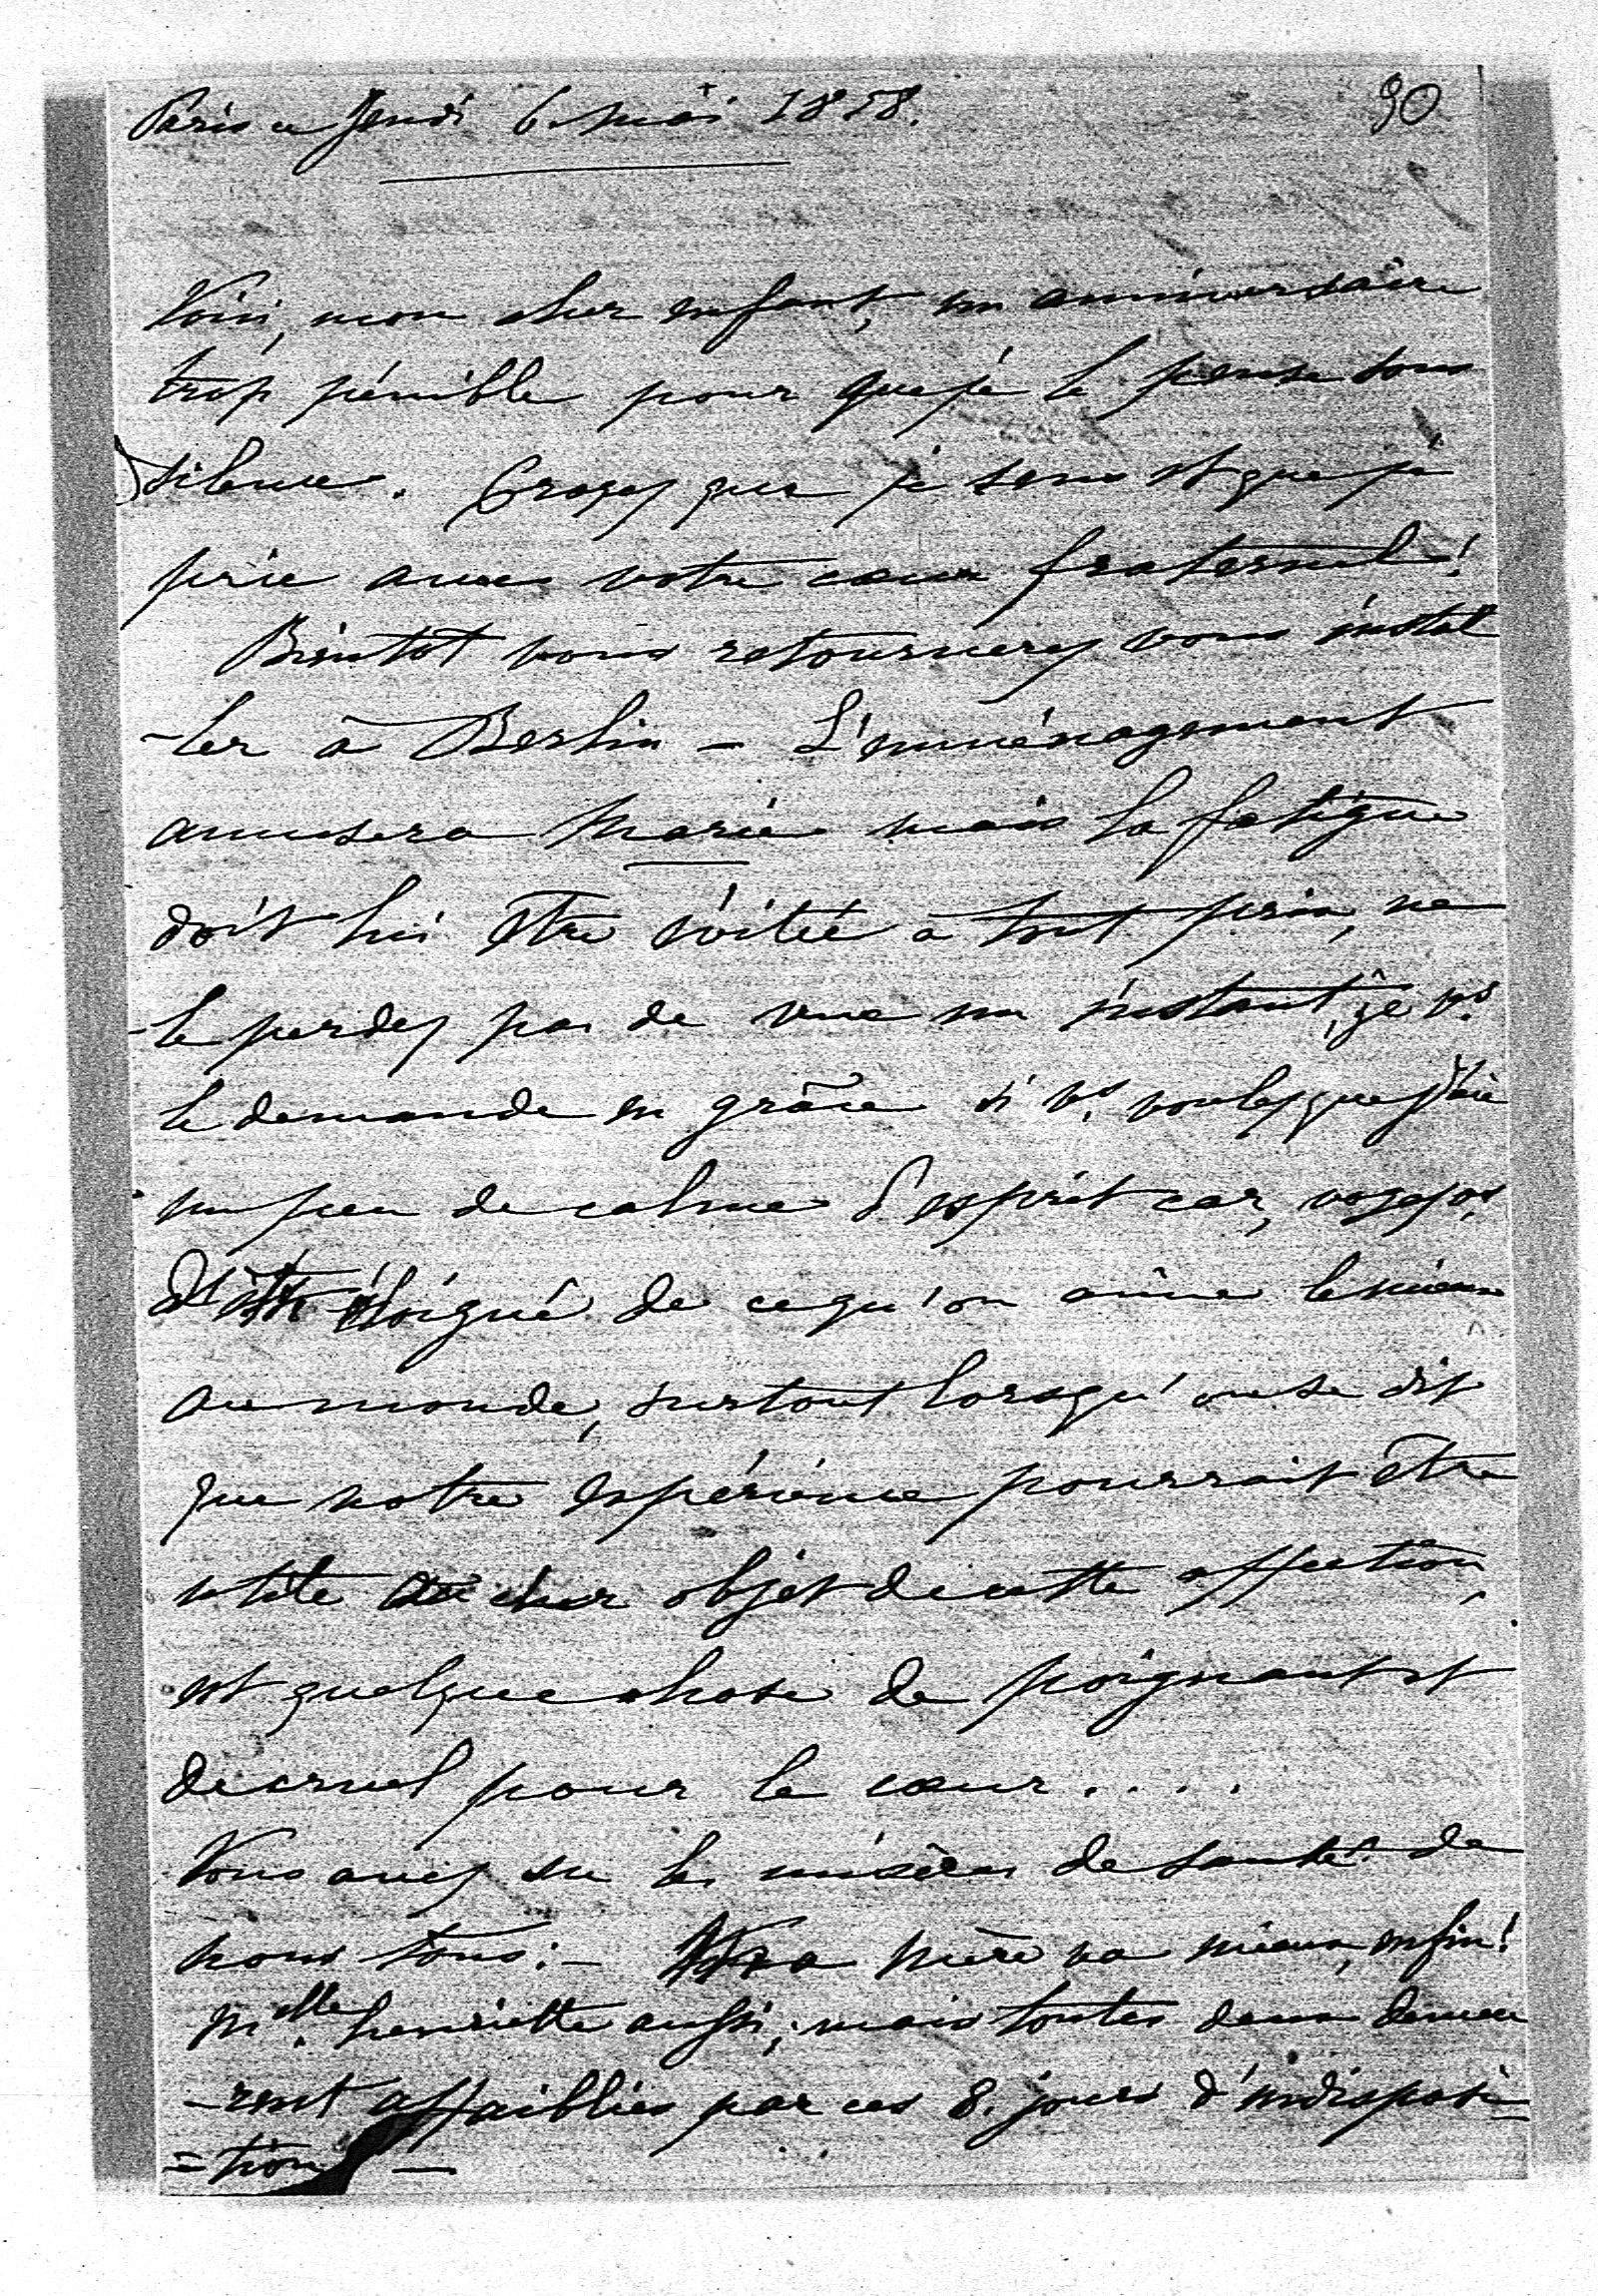 Paris ce Jeudi 6. mai 1858.
90
Voici, mon cher enfant, un anniversaire
trop pénible pour que je le passe sous
silence. Croyez que je sens et que je
prie avec votre cœur fraternel!
Bientôt vous retournerez vous instal
-ler à Berlin - L'emménagement
amusera Marie mais la fatigue
doit lui être évitée à tout prix, ne
-le perdez pas de vue un instant, je vs.
le demande en grâce si vs. voulez que j'aie
un peu de calme d'esprit car, voyez vs.
d'être éloigné de ce qu'on aime le mieux
au monde, surtout lorsqu'on se dit
que notre expérience pourrait être
utile au cher objet de cette affection,
est quelque chose de poignant et
de cruel pour le cœur....
Vous avez su les misères de santé de
nous tous:- Ma mère va mieux, enfin!
Melle. henriette aussi; mais toutes deux demeu
-rent affaiblies par ces 8. jours d'indisposi=
=tion -